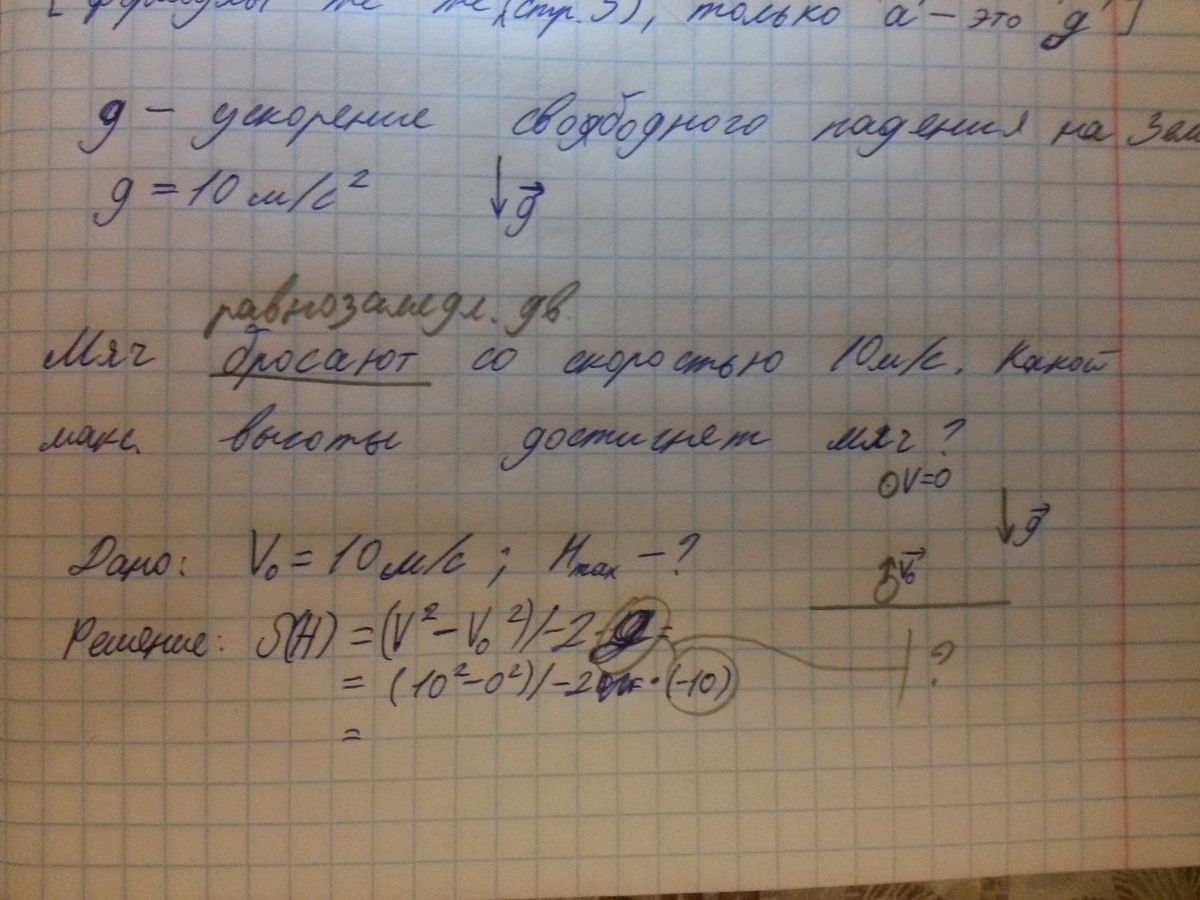 [формулы те же (стр. 5), только a - это g]
g - ускорение свободного падения на Зем
g = 10 м/с²
g⃗
равнозамедл. дв.
Мяч бросают со скоростью 10м/с. Какой
макс. высоты достигнет мяч?
V=0
g⃗
Дано: V₀ = 10 м/с ; Hmax - ?
V⃗₀
Решение: S(H) = (V² - V₀²)/-2·g =
?
= (10² - 0²)/-2 · (-10)
=